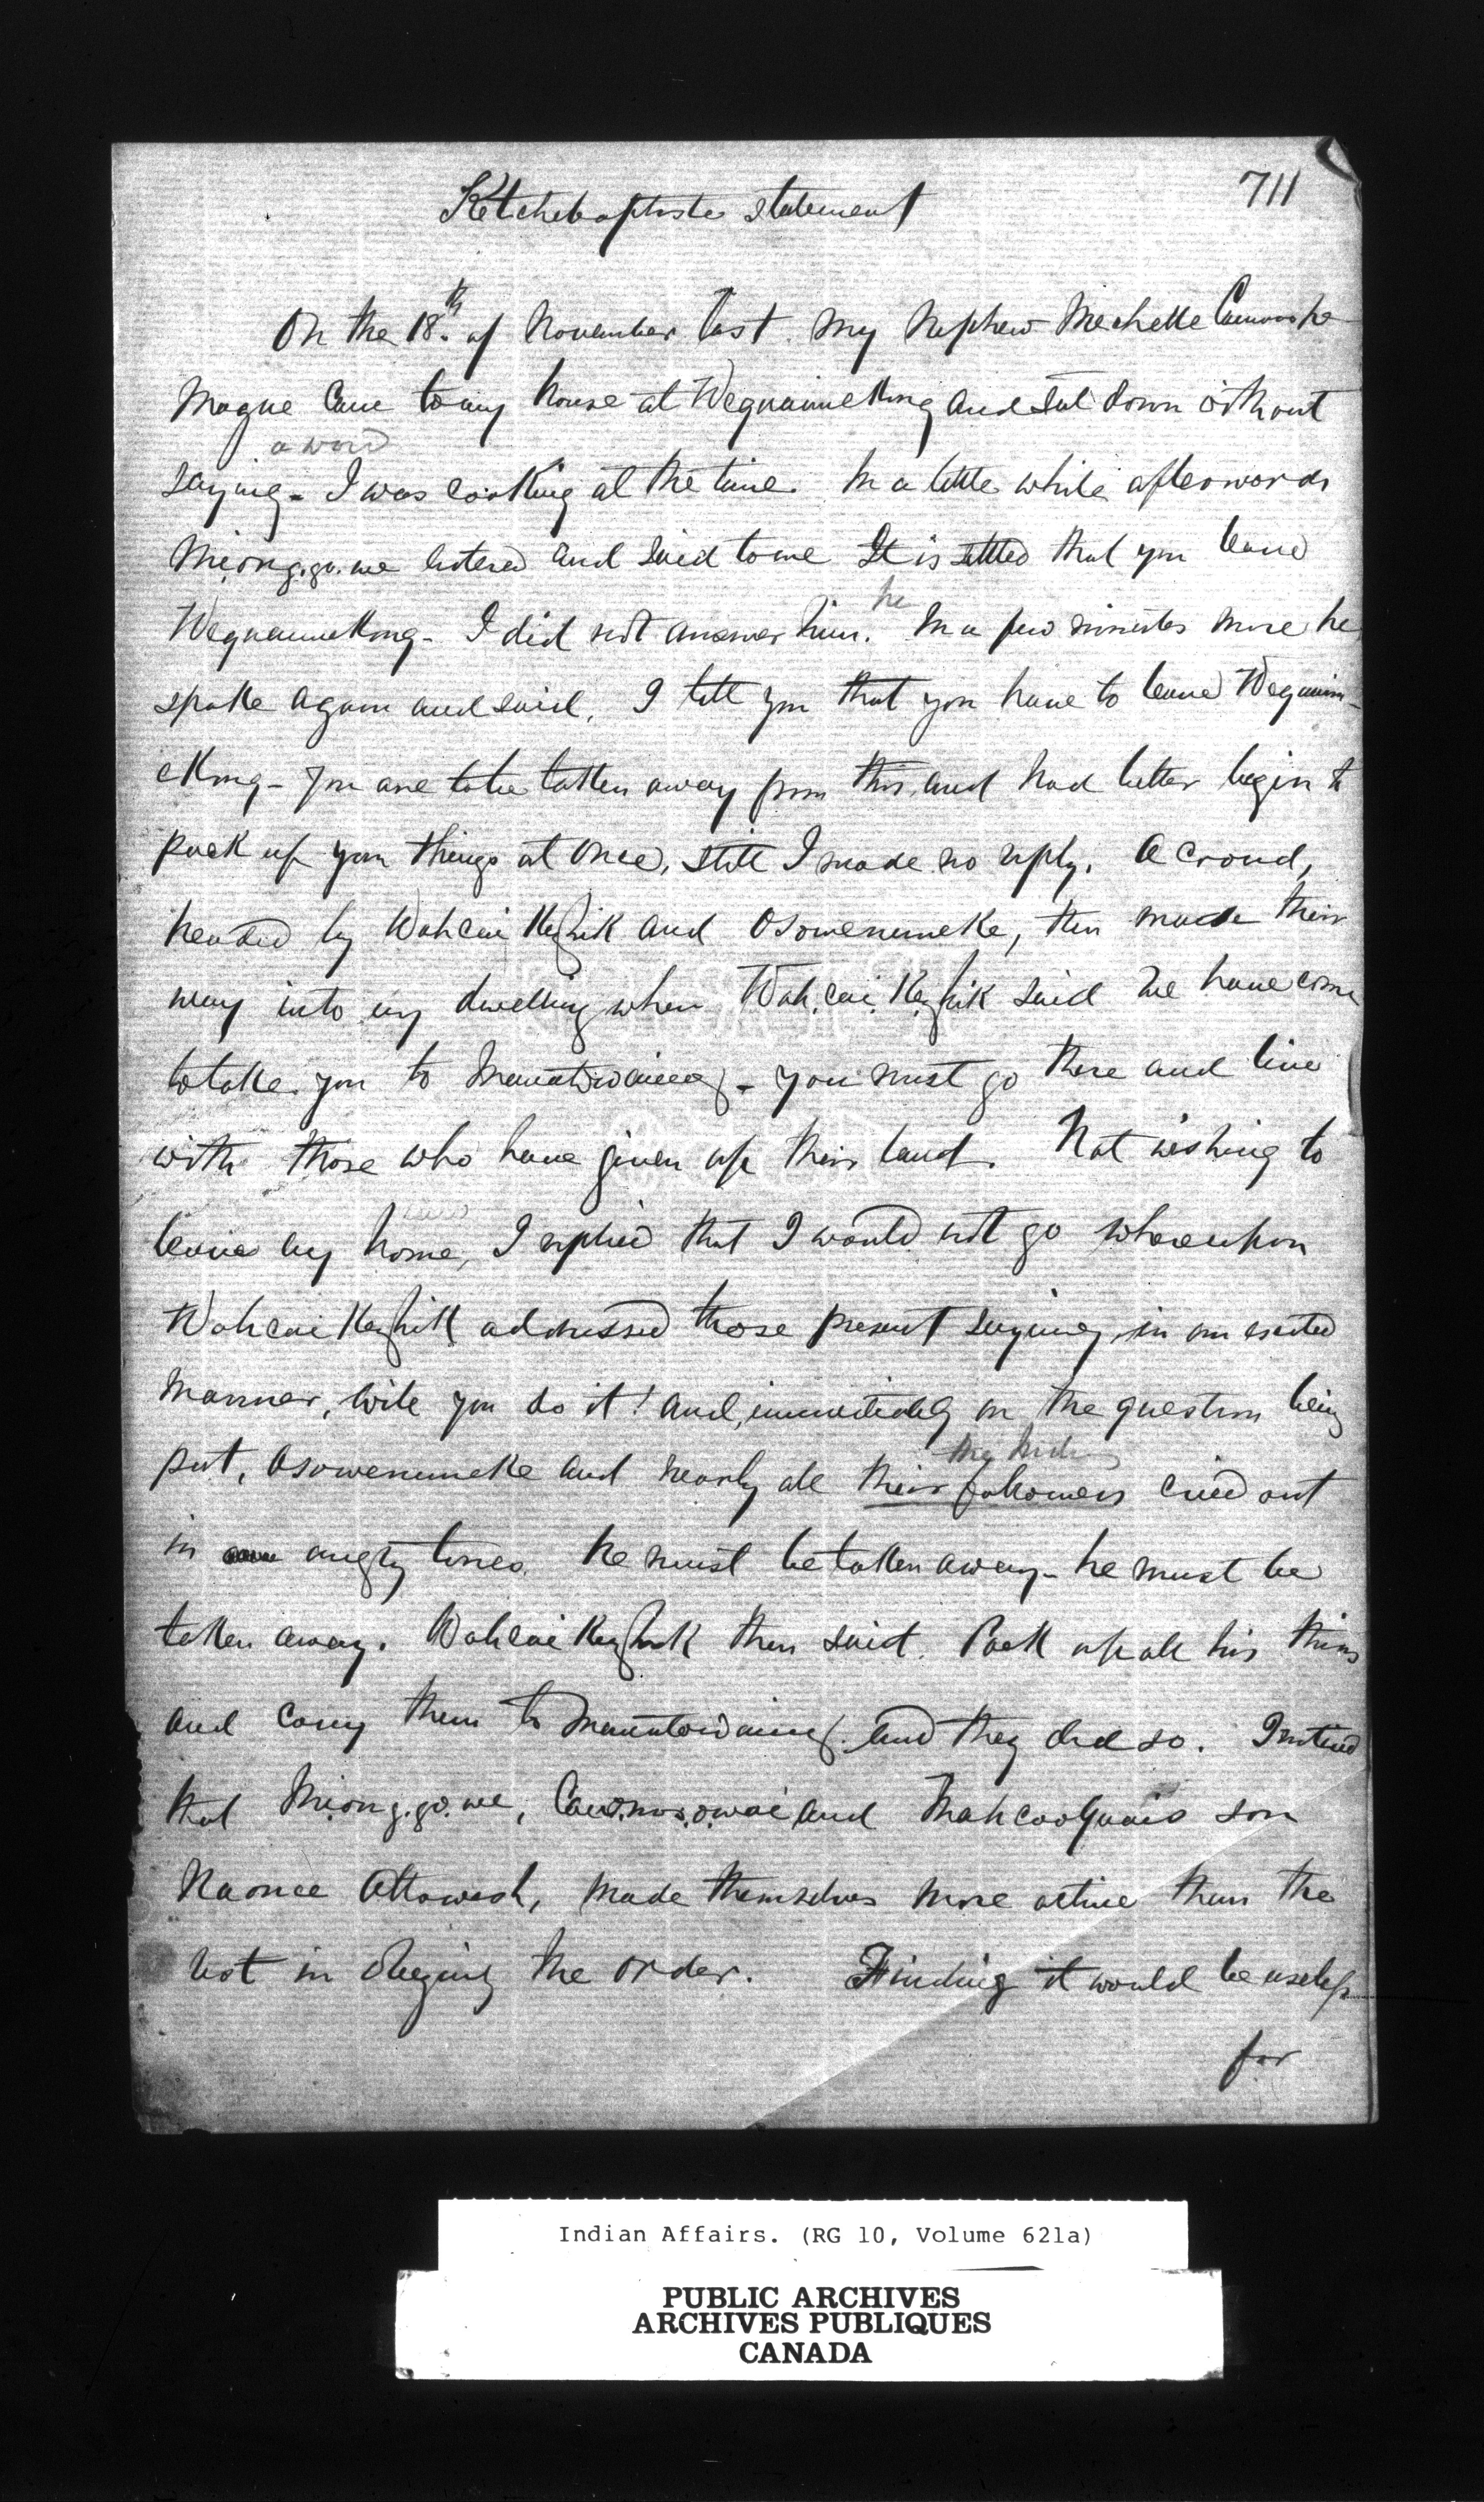 711
Ketchebaptiste statement
On the 18th of November last my Nephew Mechelle
Mogue Came to my house at Wequaimekong and sat down without
a word
saying - I was cooking at the time. In a little while afterwords
Miong.go.we entered and said to me It is settled that you leave
he
Wequaimekong - I did not answer him. In a few minutes more he
spoke again and said, I tell you that you have to leave Wequaim-
ekong - You are to be taken away from this, and had better begin to
pack up your things at once, still I made no reply. A croud,
headed by Wahcai Kezhik and Osowenimeke, then made their
way into my dwelling when Wah.cai.Kezhik said We have come
to take you to Manatowaning - you must go there and live
with those who have given up their land. Not wishing to
leave my home, I replied that I would not go whereupon
Wahcai Kezhik addressed those present saying in an exited
manner, will you do it! and, immediately on the question being
put, Osowenimeke and nearly all their followers cried out
in angry tones. he must be taken away - he must be
taken away. Wahcai Kezhik then said. Pack up all his things
and carry them to Manatowaning. and they did so. I noticed
that Miong.go.we, and Mahcooquais son
Naonce Attowish, made themselves more active than the
rest in obeying the order. Finding it would be useless
for
Indian Affairs. (RG 10, Volume 621a)
PUBLIC ARCHIVES
ARCHIVES PUBLIQUES
CANADA